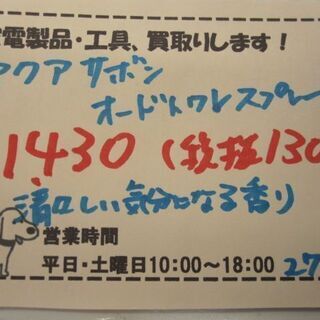 電製品・工具、買取りします!
アクア サボン
オードトワレ スプレー
1430(税抜130
清々しい気分になる香り
営業時間
平日・土曜日10:00～18:00
27